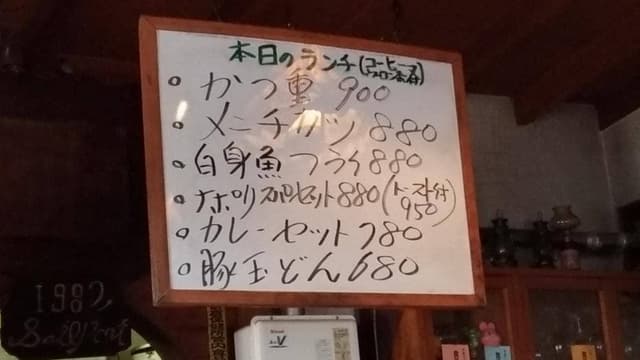 本日のランチ(コーヒー
かつ重 900
メニチカツ 880
白身魚フライ 880
ナポリスパセット 880(トースト付
950)
カレーセット 780
豚玉どん 680
1987
V